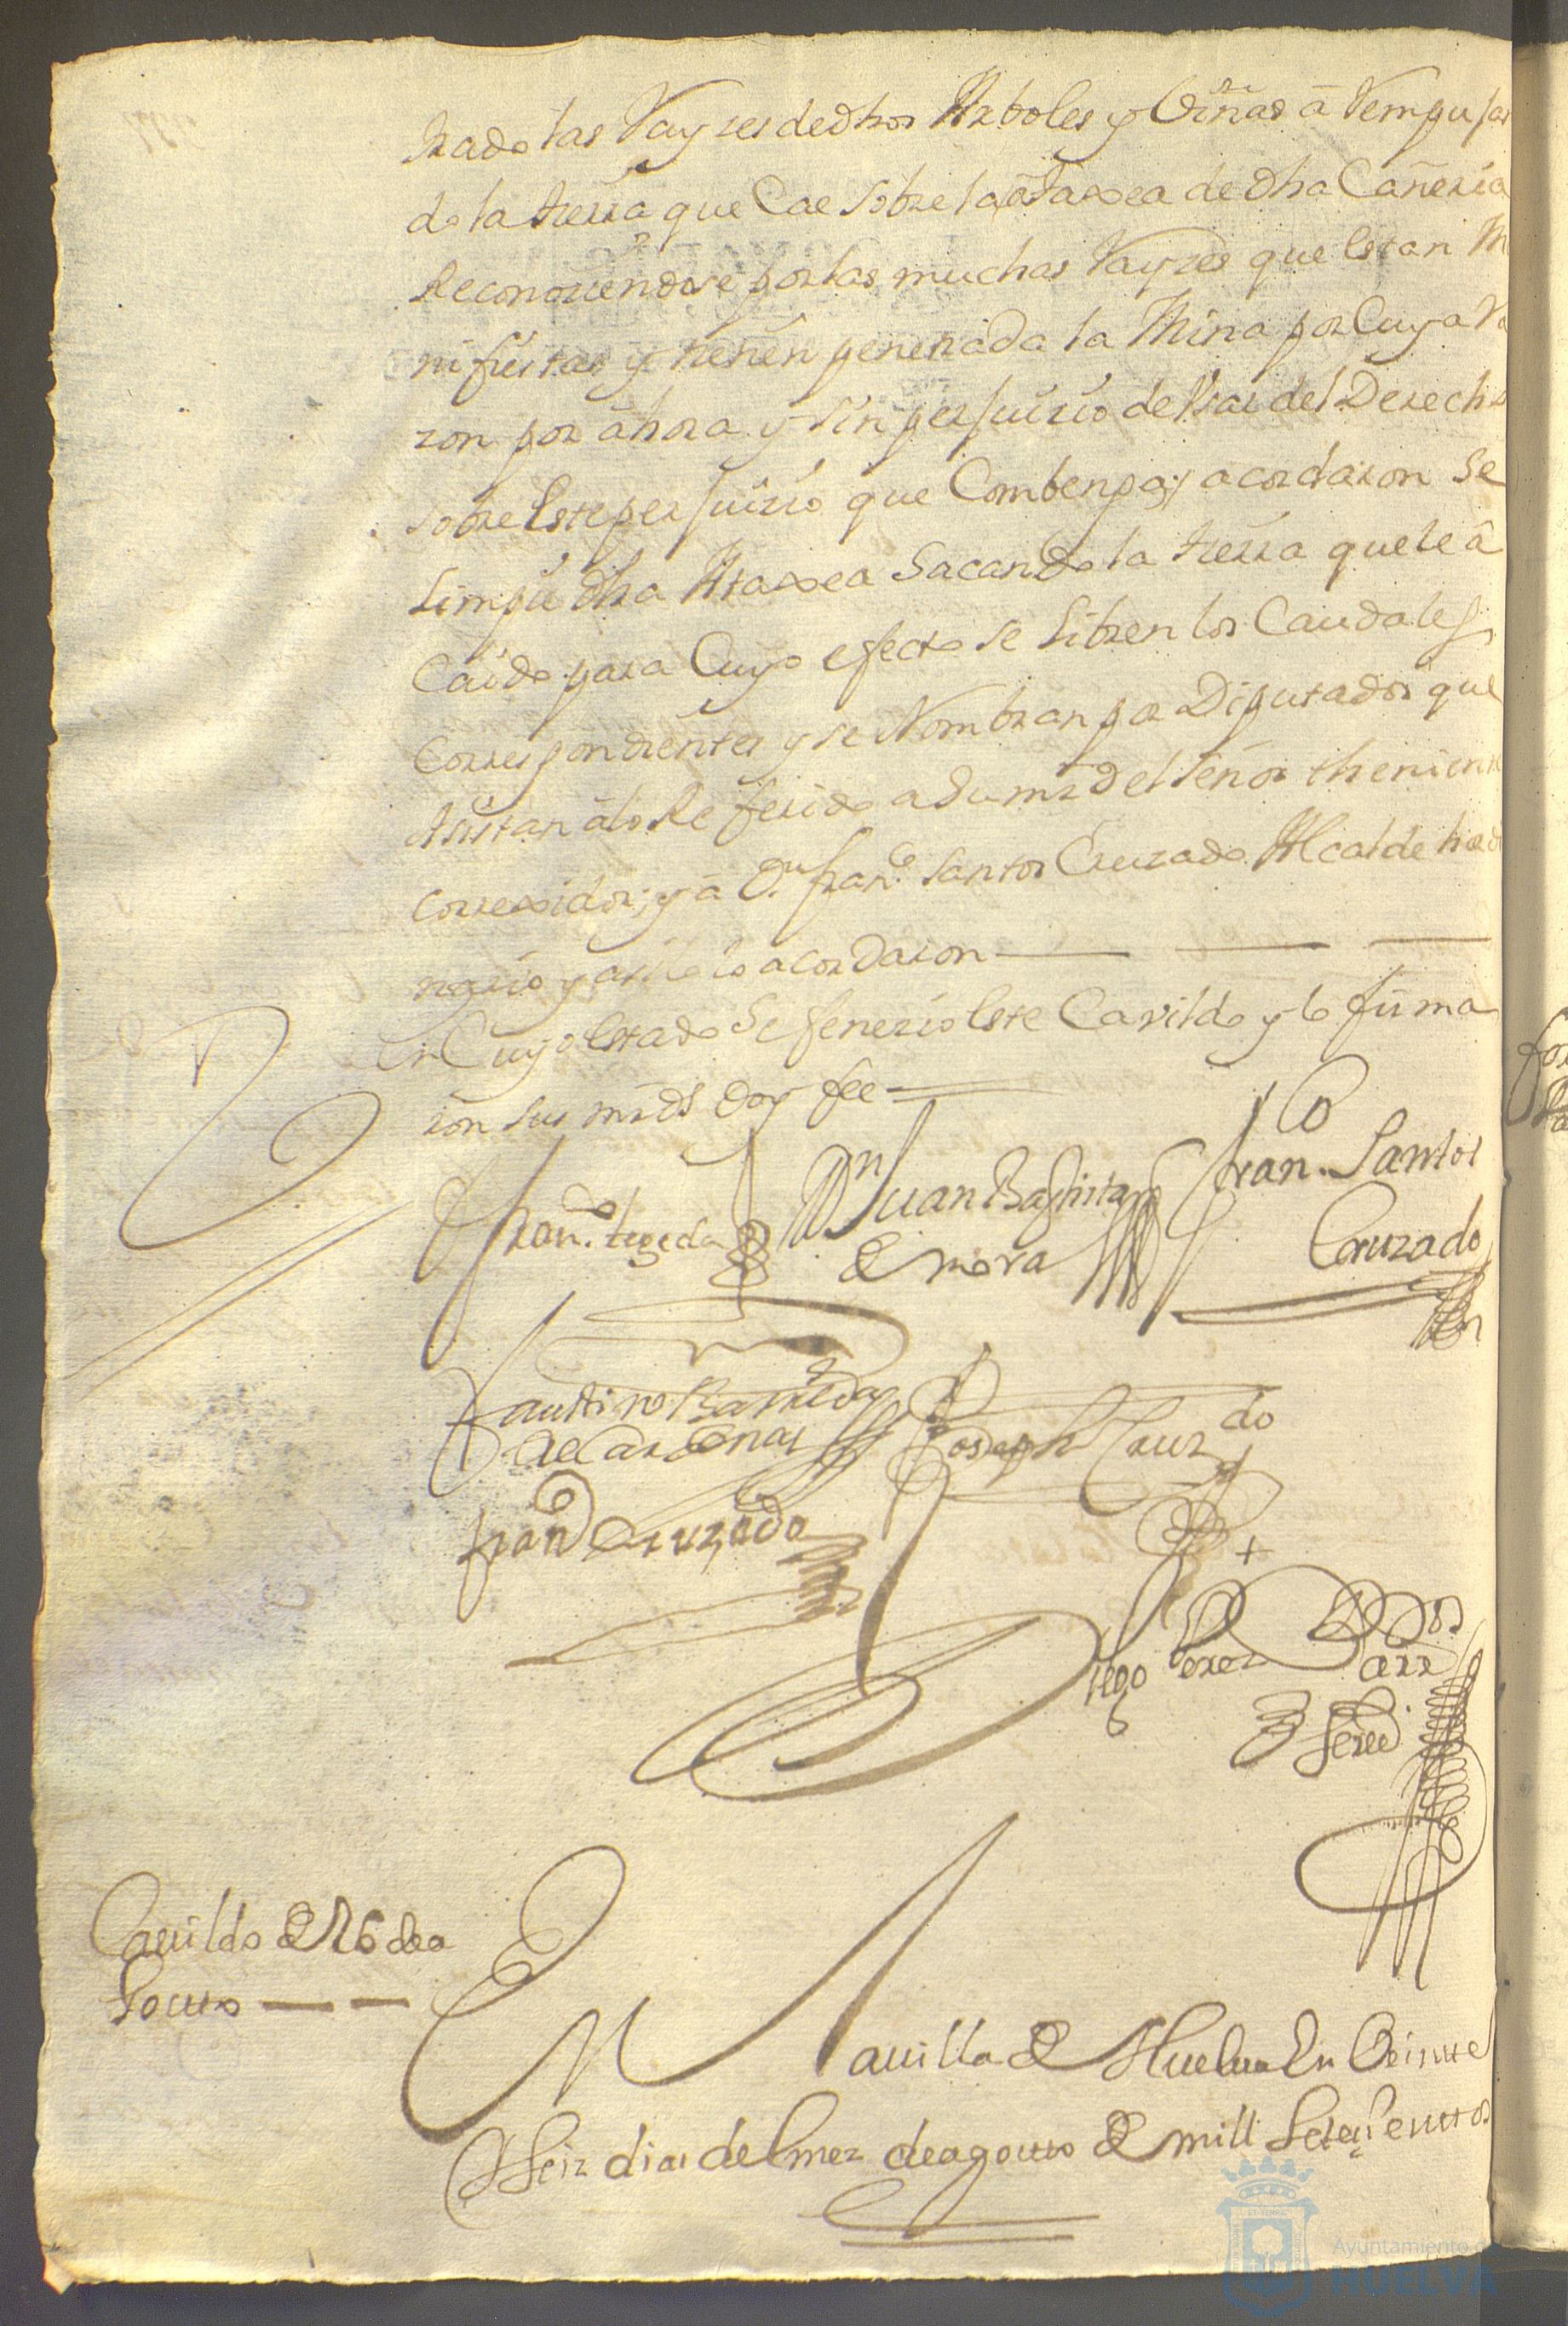 trado las Rayzes de dhos Arboles y Viñas â rempujar
do la tierra que Cae sobre la ataxea de dha Cañeria
Reconoziendose por las muchas Rayzes que estan Ma
nifiestas y tienen penetrada la Mina por Cuya Ra
zon por ahora y sin perjuizio de Vsar del Derecho
sobre Este perjuizio que Combenga; acordaron Se
Limpie dha Ataxea Sacando la tierra que le â
Caido para Cuyo efecto se Libren los Caudales
Correspondientes y se Nombran por Diputados que
Asistan âlo Referido a Su mrd el Señor theniente
Correxidor; y â Dn. Franco. Santos Cruzado Alcalde hordi
nario y asi lo acordaron
En Cuyo Estado Se fenezio Este Cavildo y lo firma
ron Sus mrds Doy fee
Franco. tegeda
Dn Juan Baptista
de mora
Franco. Santos
Cruzado
Faustino Barriedas
de Cardenas
Joseph Cruzdo
Franco Cruzado
Diego Perez
Cauildo de 26 de a
Gosto
En La uilla de Huelua En Veinte
y Seis dias del mez de agosto de mill Setezientos
Ayuntamiento de
HUELVA